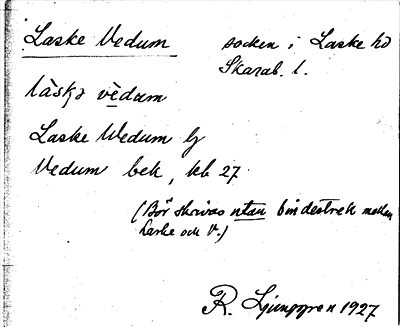 Laske Vedum socken i Laske hd
Skarab. l.
làskə vèdum
Laske Wedum lj
Vedum bek, kb 27
(Bör skrivas utan bindestrek mellan
Laske och V.)
R. Ljunggren 1927